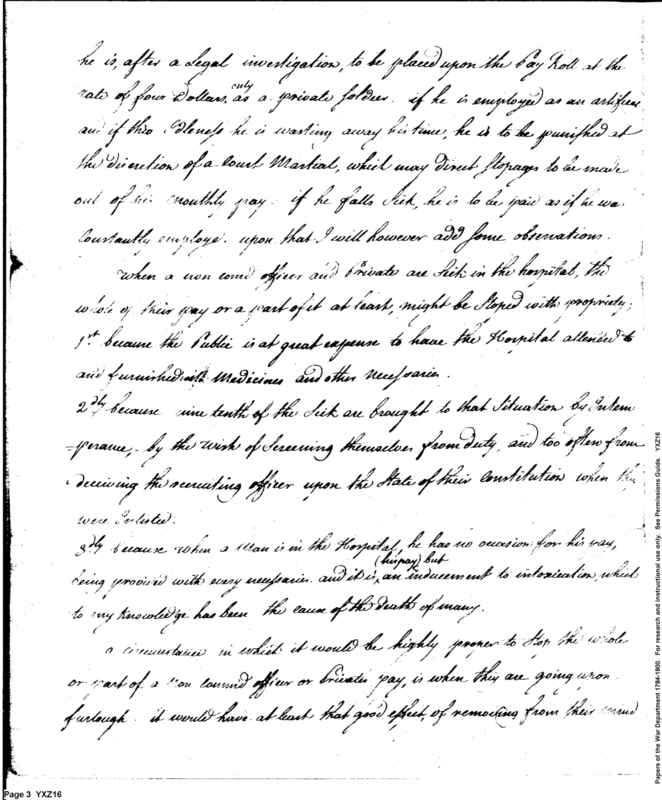 he is, after a Legal investigation, to be placed upon the Pay Roll at the
rate of four Dollars, only as a private soldier. if he is employed as an artificer
and if thro Idleness he is wasting away his time, he is to be punished at
the discretion of a Court Martial, which may direct Stopages to be made
out of his monthly pay. if he falls Sick, he is to be paid as if he was
Constantly employe. upon that I will however add some observations.
When a non comd officer and Private are Sick in the hospital, the
whole of their pay or a part of it at least, might be Stoped with propriety;
1st because the Public is at great expense to have the Hospital attended to
and furnished with Medicines and other Necessaries.
2dly because nine tenth of the Sick are brought to that Situation by Intem
=perance, by the wish of Screening themselves from duty, and too often from
deceiving the recruiting officer upon the State of their Constitution when they
were Enlisted.
3dly because when a Man is in the Hospital, he has no occasion for his pay,
being provided with every necessaries. and it is (his pay) but an inducement to intoxication, which
to my Knowledge has been the cause of the death of many.
a circumstance in which it would be highly proper to Stop the whole
or part of a Non commd officer or Privates pay, is when they are going upon
furlough. it would have at least that good effect, of removing from their mind
Page 3 YXZ16
Papers of the War Department 1784-1800. For research and instructional use only. See Permissions Guide. YXZ16